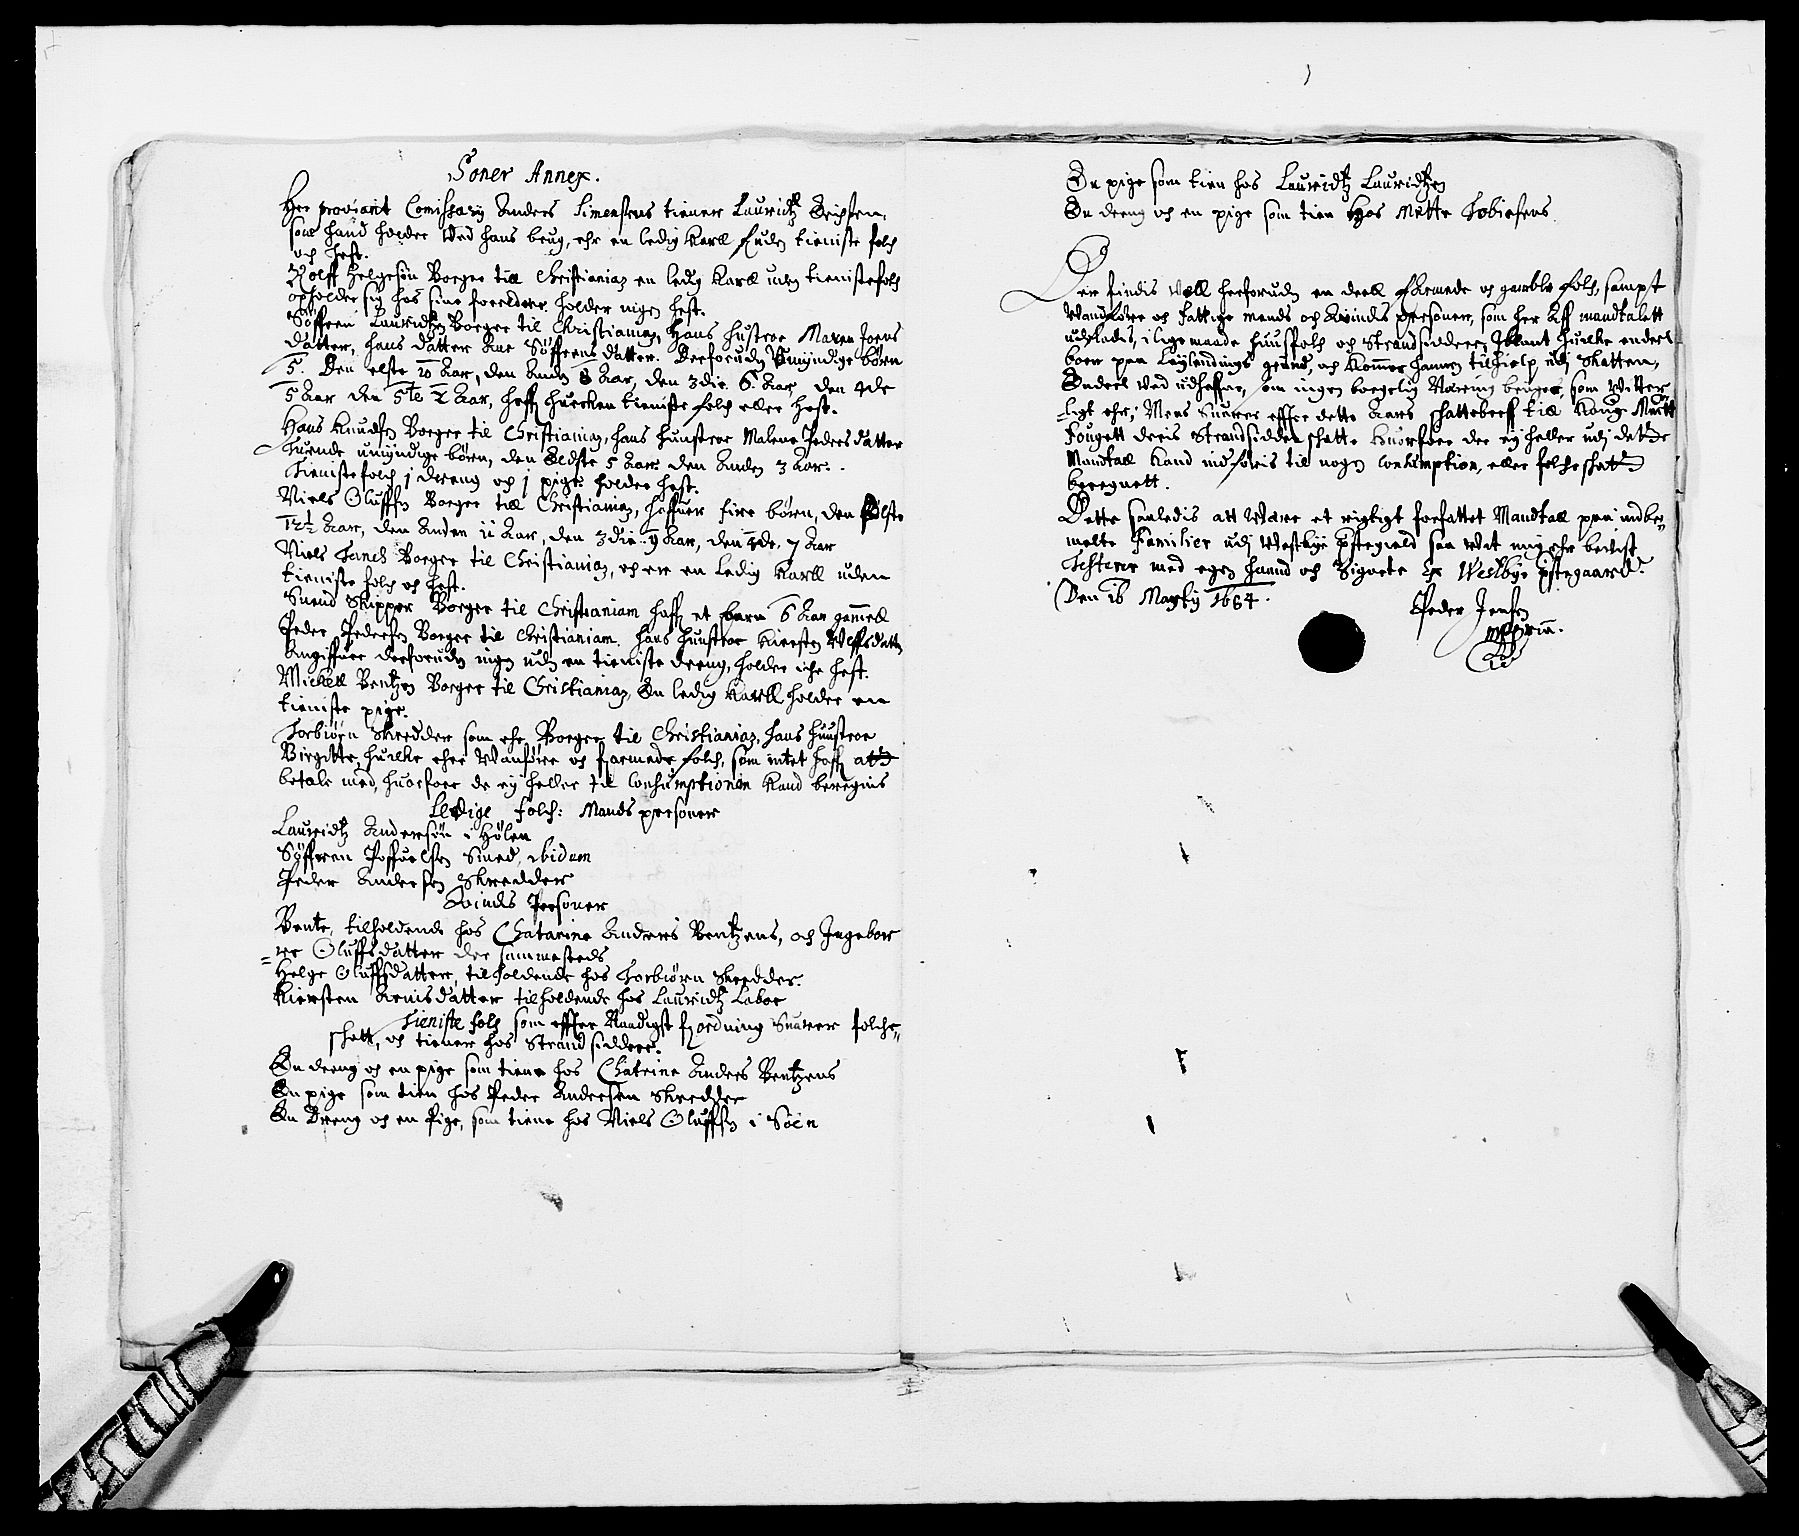 Soner Annex.
Her proviant Comissary Anders Simensens tiener Lauridtz
som hand holder ved hans brug, ehr en ledig Karll uden tieniste folch
och hest.
Rolff Helgesøn Borger till Christianiaz en ledig Karll uden tienistefolch
opholder sig hos sine forelderer holder ingen hest.
Søffren Lauridtzen Borger til Christianiaz, Hans hustroe Maren Joens
datter, hans datter Ane Søffrens datter. Derforuden Umyndige børen
5. Den elste 10 Aar, den Anden 8 Aar, den 3die 6. Aar, den 4de
5 Aar den 5te 2 Aar, haffr huercken tieniste folch eller Hest.
Hans Knudsen Borger til Christianiaz, hans huustroe Malene Peders datter
Tuende umyndige børen, den Eldste 5 Aar. den Anden 3 Aar.
Tienistefolch 1 dreng och 1 pige. holder hest.
Niels Oluffsen Borger till Christianiaz, haffuer fire børen, den Eldste
12½ Aar, den Anden 11 Aar, den 3die 9 Aar, den 4de. 7 Aar
Niels Borger til Christianiaz, och er en Ledig Karll uden
tieniste folch och hest.
Suend Skipper Borger til Christianiam haffr et barn 6 Aar gammell
Peder Pedersen Borger til Christianiam. hans huustroe Kiersten Olffsdatter
Angiffuer derforuden ingen uden en tieniste dreng, holder iche hest.
Mickell Bentzen Borger til Christianiaz, En ledig Karll holder en
tieniste pige.
Torbiørn Skredder som ehr Borger til Christianiaz, hans huustroe
Birgitte, huilke eher Wanføre och fharmede folch, som intet haffr att
betale med, huorfoer de ey heller til Consumptionen Kand beregnis
Ledige folch: Mands personer
Lauridtz Andersøn i Hølen
Søffren Poffuelsen Smed, ibidem
Peder Andersen Skredder
Quinds Personer
Bente, tilholdende hos Chatarine Anders Bentzens, och Ingebor
=re Oluffsdatter der sammesteds
Helge Oluffsdatter, tilholdende hos Torbiørn Skredder.
Kiersten Arnisdatter tilholdende hos Lauridtz
Tieniste folch som effter Naadigst fordning Suarer folche=
schatt, och tiener hos Strand siddere.
En dreng och en pige som tiene hos Chatrine Anders Bentzens
En pige som tien hos Peder Andersen Skredder
En Dreng och en Pige, som tiene hos Niels Oluffsen i Søen
En pige som tien hos Lauridtz Lauridtzen
En dreng och en pige som tien Hos Mette Tobiesens
Der findis well herforuden en deell fharmede och gamble folch, sampt
Wanføre och fattige mands och Quinds personer, som her Aff mandtalett
udeladis, i lige maade huusfolch och Strandsiddere, Iblant huilke endeel
boer paa Leylendings grund, och Kommer hannem tilhielp udj Skatten,
Endeel ved udhaffner, som ingen borgelig Næring bruger, som witter
=ligt ehr, Mens Suarer effter dette Aars skattebreff till Kong. Maytts
Fougett deris Strandsidder skatt. huorfoer der ey heller udj dette
Mandtall Kand indføris til nogen Consumption, eller folcheskatt
beregnett.
Dette saaledis att Were et rigtigt forfattet Mandtall paa indbe=
melte Familier udj Westbye Pstegield saa vit mig ehr bevist
Testerer med egen haand och Signete Ex Westbye pstegaard.
Den 16 Marty 1684.
Peder Jensen
mppria.